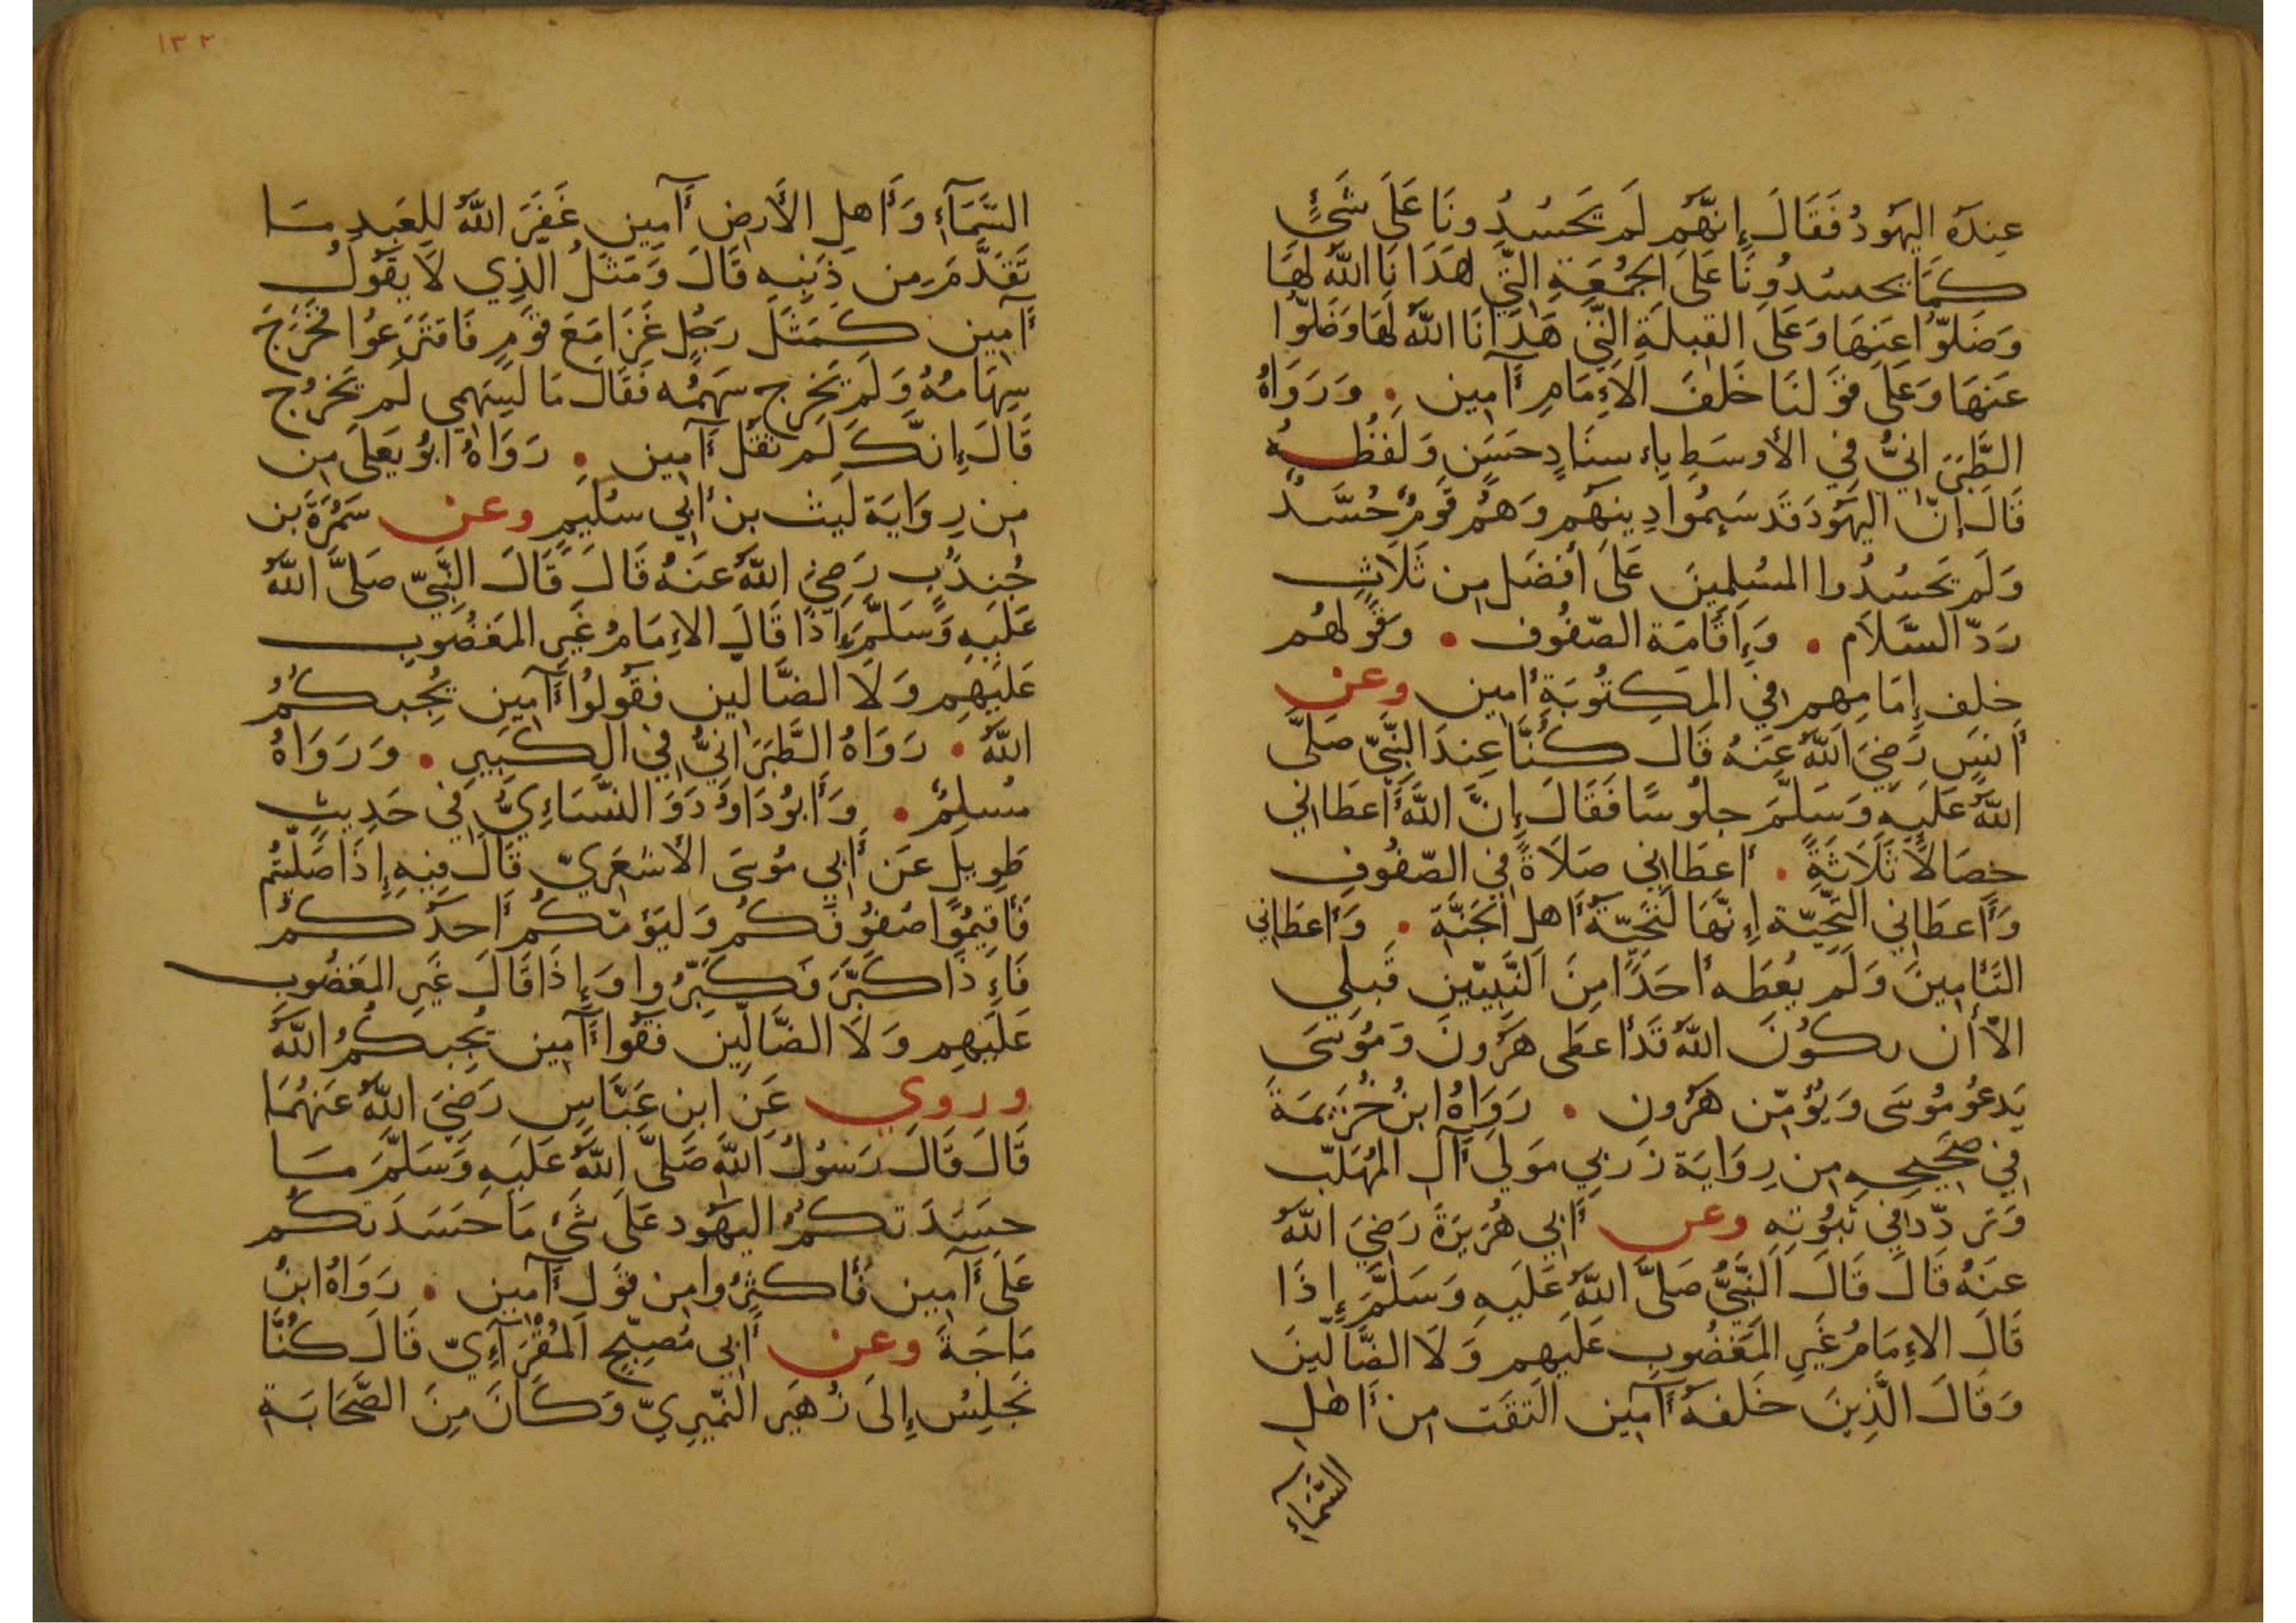 عِندَهُ اليَهُودُ فَقَالَ إِنَّهُم لَم يَحسُدُونَا عَلَى شَيْءٍ
كَمَا يَحسُدُونَا عَلَى الجُمُعَةِ الَّتِي هَدَانَا اللَّهُ لَهَا
وَضَلُّوا عَنهَا وَعَلَى القِبلَةِ الَّتِي هَدَانَا اللَّهُ لَهَا وَضَلُّوا
عَنهَا وَعَلَى قَولِنَا خَلفَ الإِمَامِ آمِين . وَرَوَاهُ
الطَّبَرَانِيُّ فِي الأَوسَطِ بِإِسنَادٍ حَسَنٍ وَلَفظُهُ
قَالَ إِنَّ اليَهُودَ قَد سَئِمُوا دِينَهُم وَهُم قَومٌ حُسَّدٌ
وَلَم يَحسُدُوا المُسلِمِينَ عَلَى أَفضَلَ مِن ثَلَاثٍ
رَدّ السَّلَام . وَإِقَامَة الصّفُوف . وَقَولهُم
خلف إِمَامِهم في المَكتُوبَةِ أمين وعن
أَنَسٍ رَضِيَ اللَّهُ عَنهُ قَالَ كُنَّا عِندَ النَّبِيّ صَلَّى
اللَّهُ عَلَيهِ وَسَلَّمَ جلُوسًا فَقَالَ إِنَّ اللَّهَ أَعطَانِي
خصَالًا ثَلَاثَةً . أَعطَانِي صَلَاةً فِي الصّفُوفِ
وَأَعطَانِي التَّحِيّة إِنَّهَا لَتَحِيّةُ أَهل الجَنَّةِ . وَأَعطَانِي
التَّأمِينَ وَلَم يُعطَه أَحَدًا مِنَ النَّبِيّينَ قَبلِي
الّا أَن يكُونَ اللَّهُ قَد أَعطَى هَرُونَ وَمُوسَى
يَدعُو مُوسَى وَيُؤَمّن هَرُون . رَوَاهُ ابنُ خُزَيمَةَ
فِي صَحِيحِهِ مِن رِوَايَة زَربِي مَولَى آل المُهَلّب
وَتَردّد فِي ثُبُوتِهِ وعن أَبِي هُرَيرَةَ رَضِيَ اللَّهُ
عَنهُ قَالَ قَالَ النَّبِيُّ صَلَّى اللَّهُ عَلَيهِ وَسَلَّمَ إِذَا
قَالَ الإِمَامُ غَيرِ المَغضُوبِ عَلَيهِم وَلَا الضَّالِّينَ
وَقَالَ الَّذِينَ خَلفَهُ آمِين التَقَت مِن أَهلِ
السَّمَاءِ
١٣٢
السَّمَاءِ وَأَهلِ الأَرضِ آمِين غَفَرَ اللَّهُ لِلعَبدِ مَا
تَقَدَّمَ مِن ذَنبِهِ قَالَ وَمَثَلُ الَّذِي لَا يَقُولُ
آمِين كَمَثَلِ رَجُلٍ غَزَا مَعَ قَومٍ فَاقتَرَعُوا فَخَرَجَ
سِهَامُهُ وَلَم تَخرج سَهمُه فَقَالَ مَا لِسَهمِي لَم تَخرُج
قَالَ إِنّكَ لَم تَقُل آمِين . رَوَاهُ أَبُو يَعلَى مِن
مِن رِوَايَة لَيث بن أَبِي سُلَيم وعن سَمُرَةَ بن
جُندُبٍ رَضِيَ اللَّهُ عَنهُ قَالَ قَالَ النَّبِيّ صَلَّى اللَّهُ
عَلَيهِ وَسَلَّمَ إِذَا قَالَ الإِمَامُ غَيرِ المَغضُوبِ
عَلَيهِم وَلَا الضَّالِّين فَقُولُوا آمِين يُجِبكُمُ
اللَّهُ . رَوَاهُ الطَّبَرَانِيُّ فِي الكَبِيرِ . وَرَوَاهُ
مُسلِمٌ . وَأَبُو دَاوُدَ وَالنَّسَاءِيُّ فِي حَدِيثٍ
طَوِيلٍ عَن أَبِي مُوسَى الأَشعَرِيّ قَالَ فِيهِ إِذَا صَلَّيتُم
فَأَقِيمُوا صُفُوفَكُم وَليَؤُمّكُم أَحَدُكُم
فَإِذَا كَبَّرَ فَكَبِّرُوا وَإِذَا قَالَ غَيرِ المَغضُوبِ
عَلَيهِم وَلَا الضَّالِّين فقُوا آمِين يُجِبكُمُ اللَّهُ
وروي عَن ابن عَبَّاسٍ رَضِيَ اللَّهُ عَنهُمَا
قَالَ قَالَ رَسُولُ اللَّهِ صَلَّى اللَّهُ عَلَيهِ وَسَلَّمَ مَا
حسَدَتكُمُ اليَهُود عَلَى شَيْءٍ مَا حَسَدَتكُم
عَلَى آمِين فَأَكثِرُوا مِن قَول آمِين . رَوَاهُ ابنُ
مَاجَةَ وعن أَبِي مُصبِّحٍ المُقْرَآءِيّ قَالَ كُنَّا
نَجلِسُ إِلَى زُهَير النّمَيرِيّ وَكَانَ مِنَ الصَّحَابَةِ